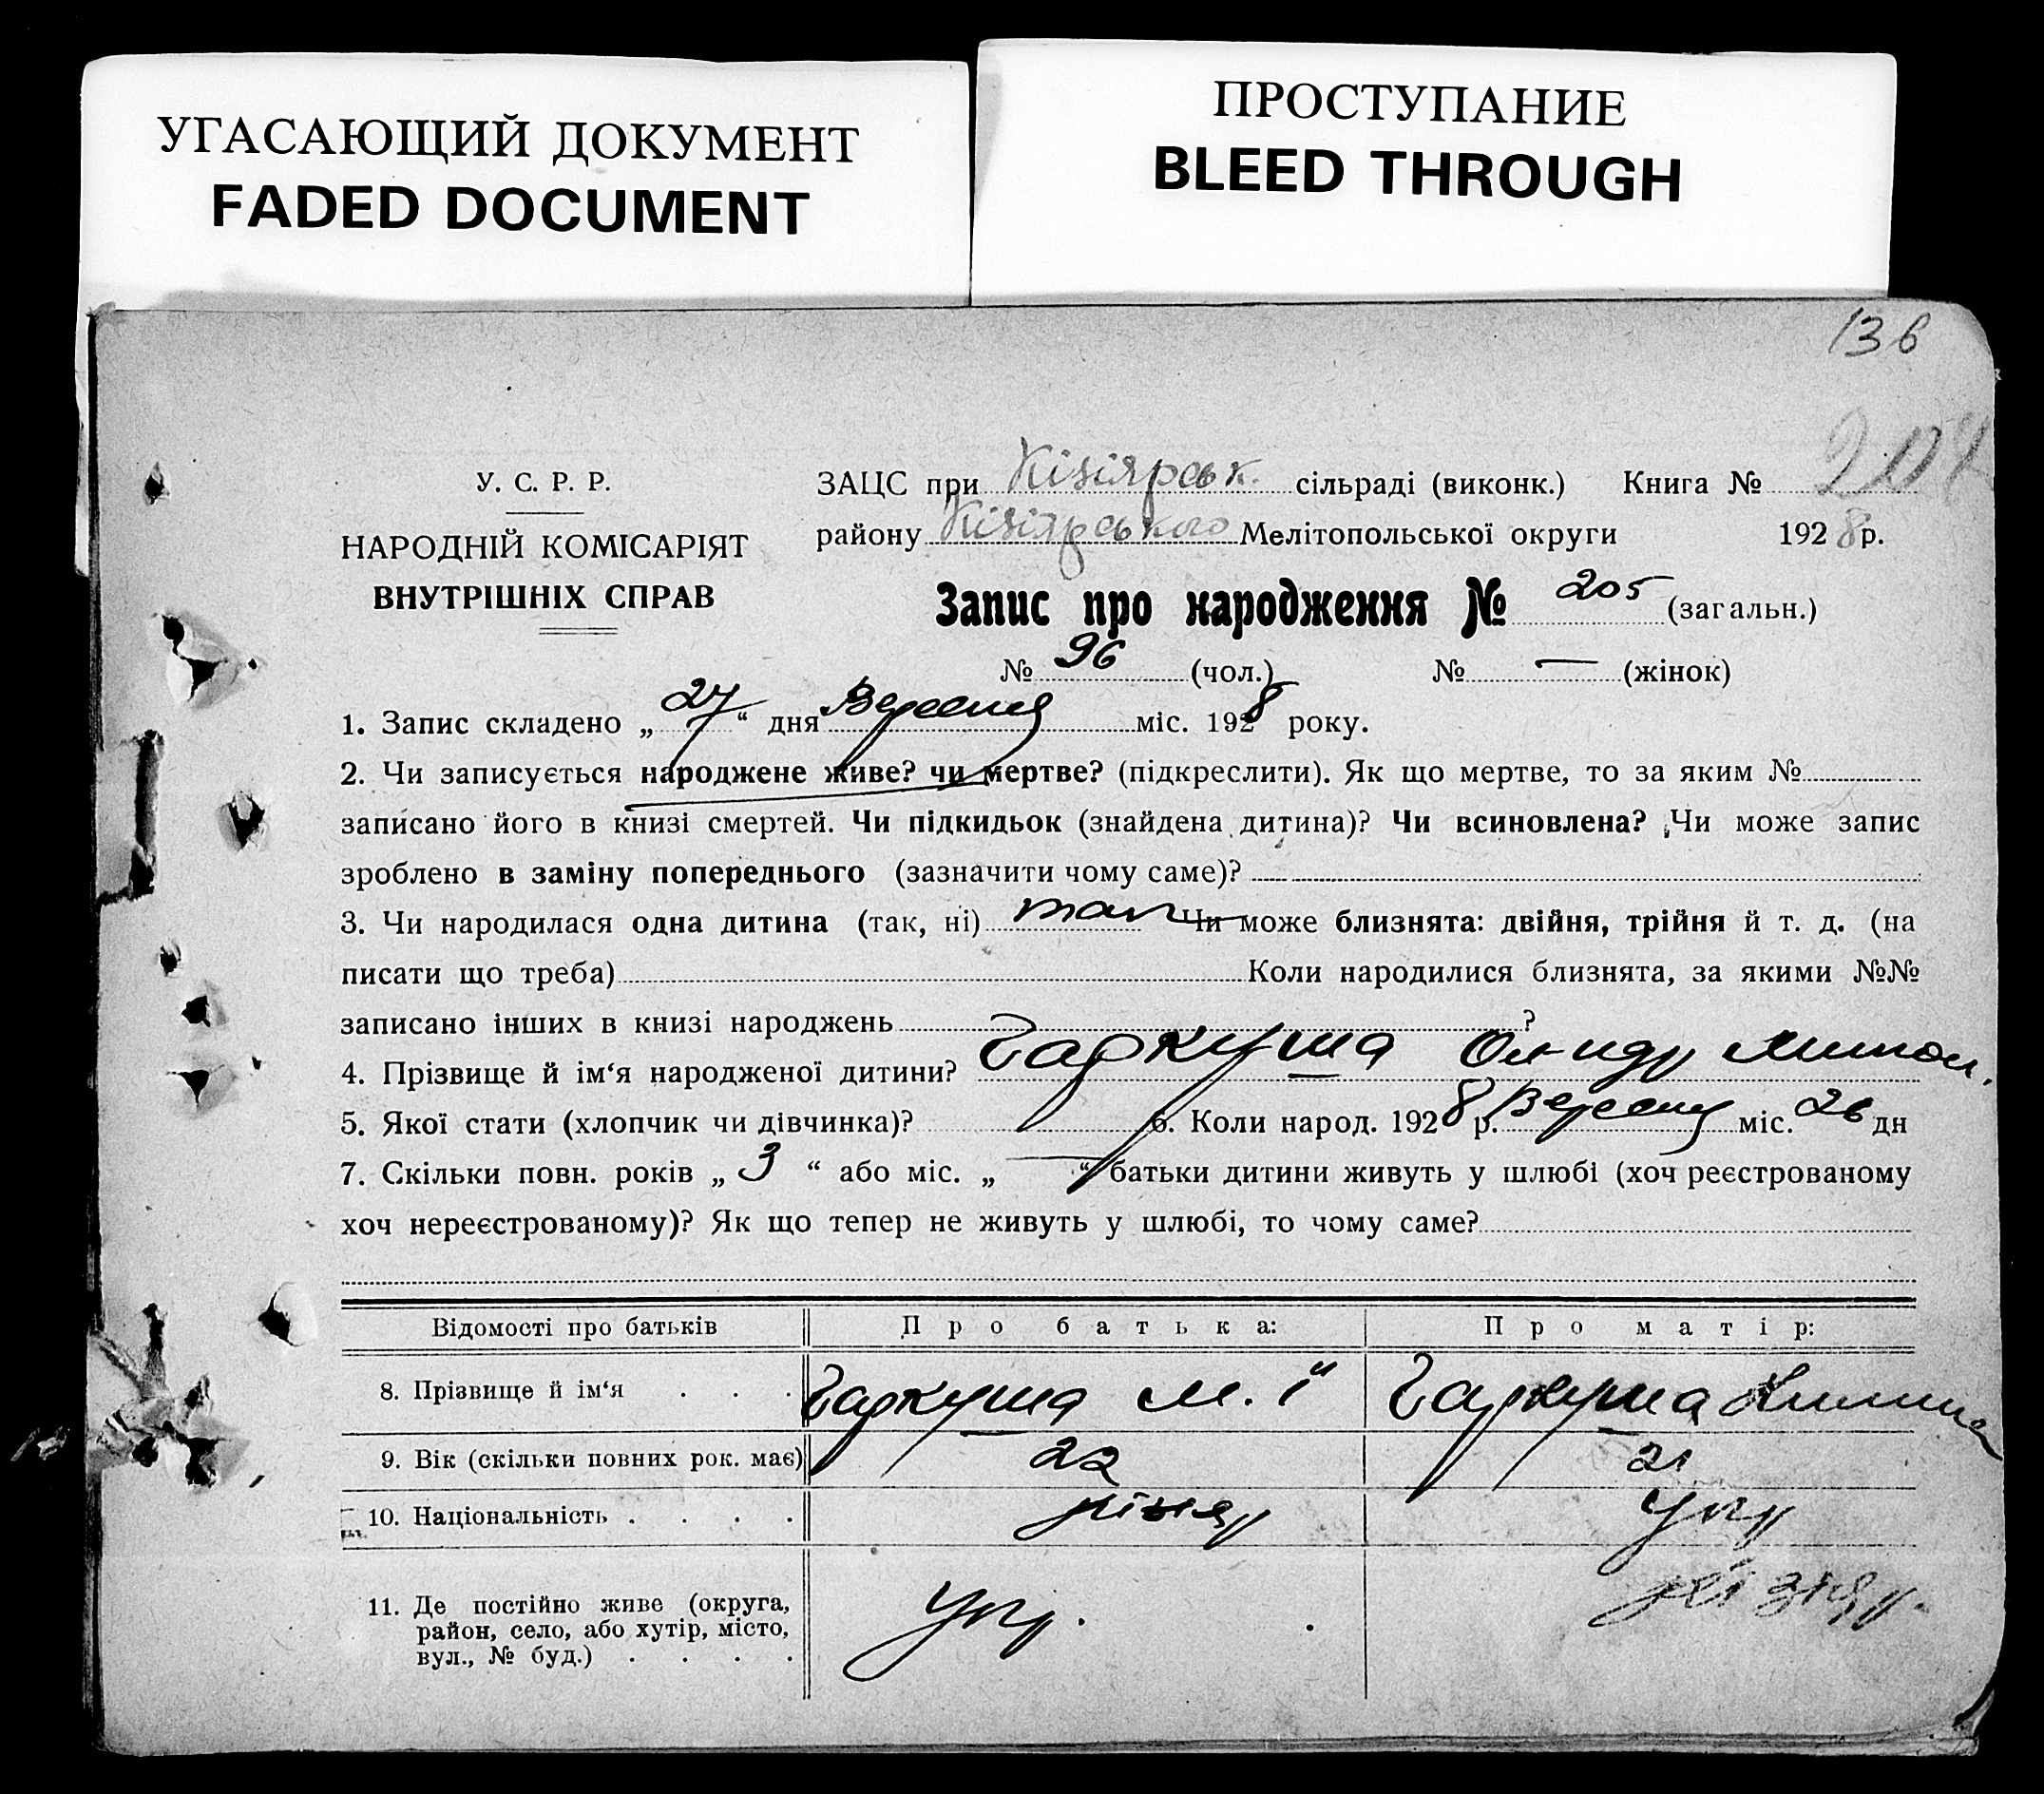 УГАСАЮЩИЙ ДОКУМЕНТ
FADED DOCUMENT
ПРОСТУПАНИЕ
BLEED THROUGH
136
У. С. Р. Р.
НАРОДНІЙ КОМІСАРІЯТ
ВНУТРІШНІХ СПРАВ
ЗАЦС при Кізіярськ. сільраді (виконк.) Книга №
району Кізіярського Мелітопольської округи 1928 р.
Запис про народження № 205 (загальн.)
№ 96 (чол.) № — (жінок)
1. Запис складено „27“ дня Вересня міс. 1928 року.
2. Чи записується народжене живе? чи мертве? (підкреслити). Як що мертве, то за яким №
записано його в книзі смертей. Чи підкидьок (знайдена дитина)? Чи всиновлена? Чи може запис
зроблено в заміну попереднього (зазначити чому саме)?
3. Чи народилася одна дитина (так, ні) так Чи може близнята: двійня, трійня й т. д. (на
писати що треба) Коли народилися близнята, за якими №№
записано інших в книзі народжень ?
4. Прізвище й ім‘я народженої дитини? Гаркуша
5. Якої стати (хлопчик чи дівчинка)? 6. Коли народ. 1928 р. Вересня міс. 26 дн
7. Скільки повн. років „3“ або міс. „—“ батьки дитини живуть у шлюбі (хоч реєстрованому
хоч нереєстрованому)? Як що тепер не живуть у шлюбі, то чому саме?
Відомості про батьків Про батька: Про матір:
8. Прізвище й ім‘я . . . Гаркуша М. І Гаркуша
9. Вік (скільки повних рок. має) 22 21
10. Національність . . . . Укр
11. Де постійно живе (округа, Укр.
район, село, або хутір, місто,
вул., № буд.) . . . .